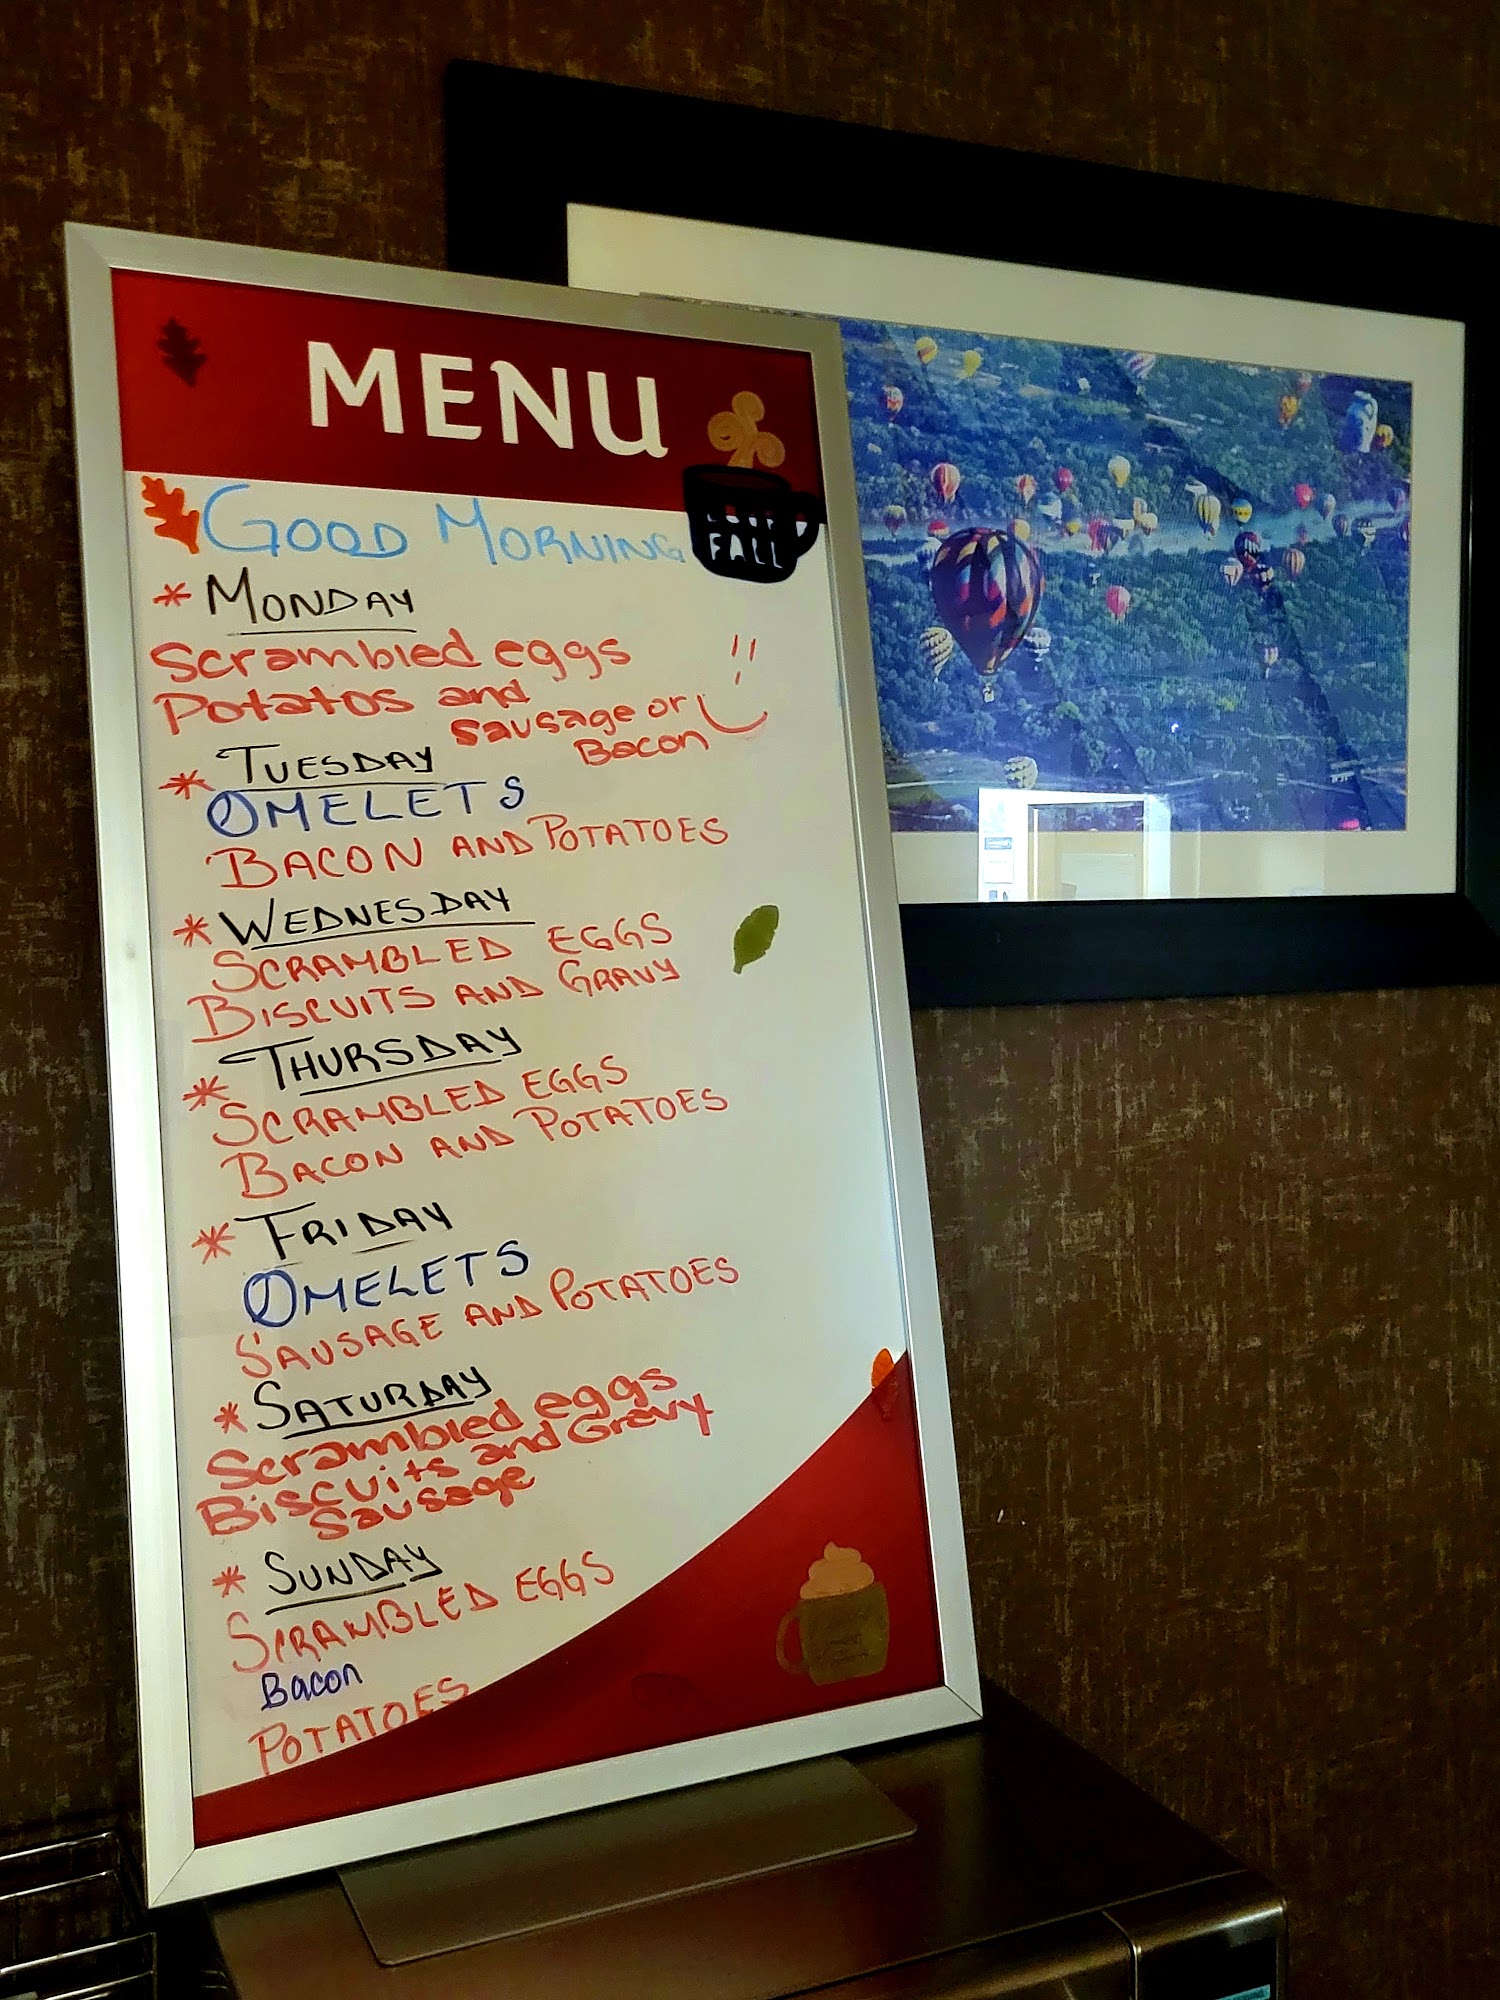 MENU
FALL
GOOD MORNING
* MONDAY
Scrambled eggs
Potatos and
sausage or
Bacon
!!
* TUESDAY
OMELETS
BACON AND POTATOES
* WEDNESDAY
SCRAMBLED EGGS
BISCUITS AND GRAVY
* THURSDAY
SCRAMBLED EGGS
BACON AND POTATOES
* FRIDAY
OMELETS
SAUSAGE AND POTATOES
* SATURDAY
Scrambled eggs
Biscuits and Gravy
Sausage
* SUNDAY
SCRAMBLED EGGS
Bacon
POTATOES